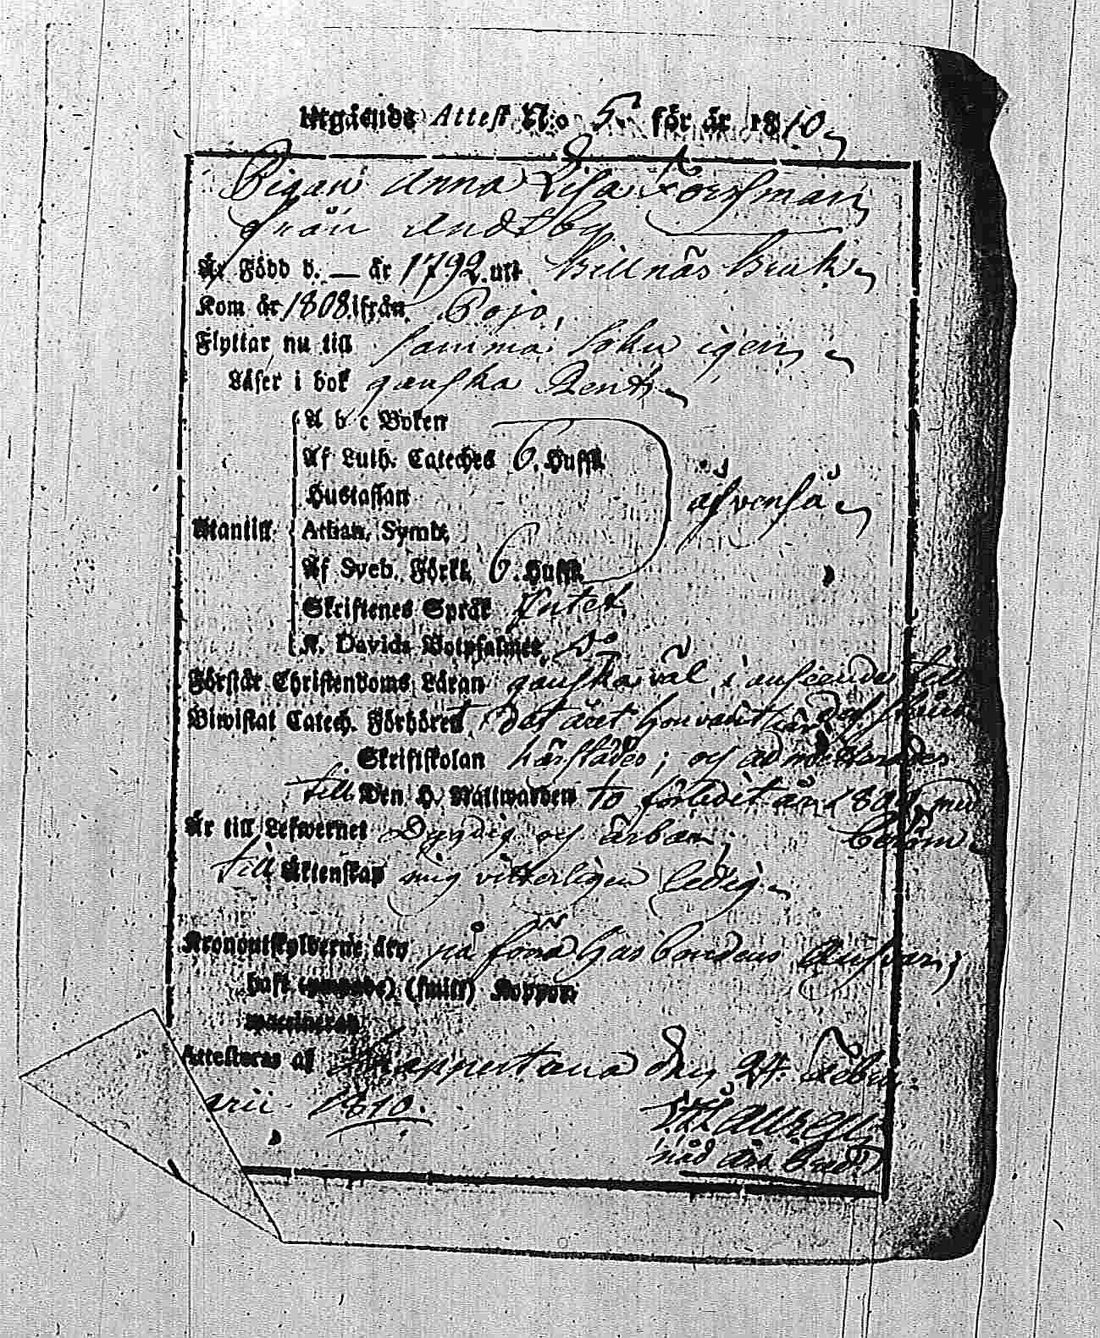 Utgående Attest No 5. för år 1810,
Pigan Anna Lisa Forsman
från Andtby
Är Född d. — år 1792 uti Billnäs Bruk
Kom år 1808 ifrån Pojo,
Flyttar nu till samma Sokn igen,
Läser i bok ganska Rent
A b c Boken
Af Luth. Cateches 6. Huffk
Hustaflan
äfvenså
Utantill Athan. Symb.
Af Sveb. Förkl. 6. Huffk
Skriftenes Språk Intet
K. Davids Botpsalmer D:o
Förstår Christendoms Läran ganska väl i anseende till
Biwistat Catech. Förhören, det året hon varit
Skriftskolan härstädes; och admitterades
till Den H. Nattwarden to förledit år 1809, med
Är till Lefwernet Dygdig och ärbar; beröm
till Äktenskap mig vitterligen ledig
Kronoutskylderne äro på förra Husbondens Ansvar;
haft (fullt) Koppor
Attesteras af Knappertana den 24 Febru-
arii 1810.